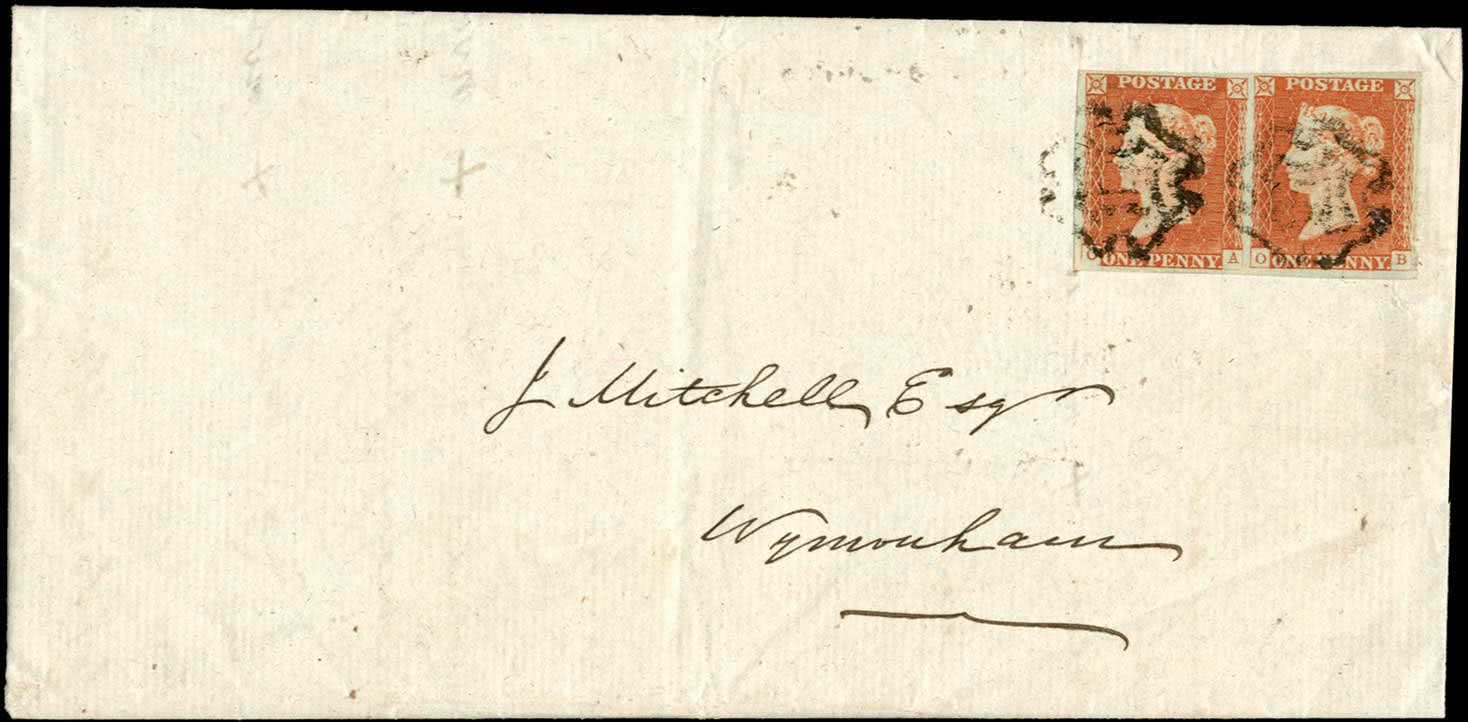 POSTAGE POSTAGE
O ONE PENNY A O ONE PENNY B
J Mitchell Esqr
Wymonham